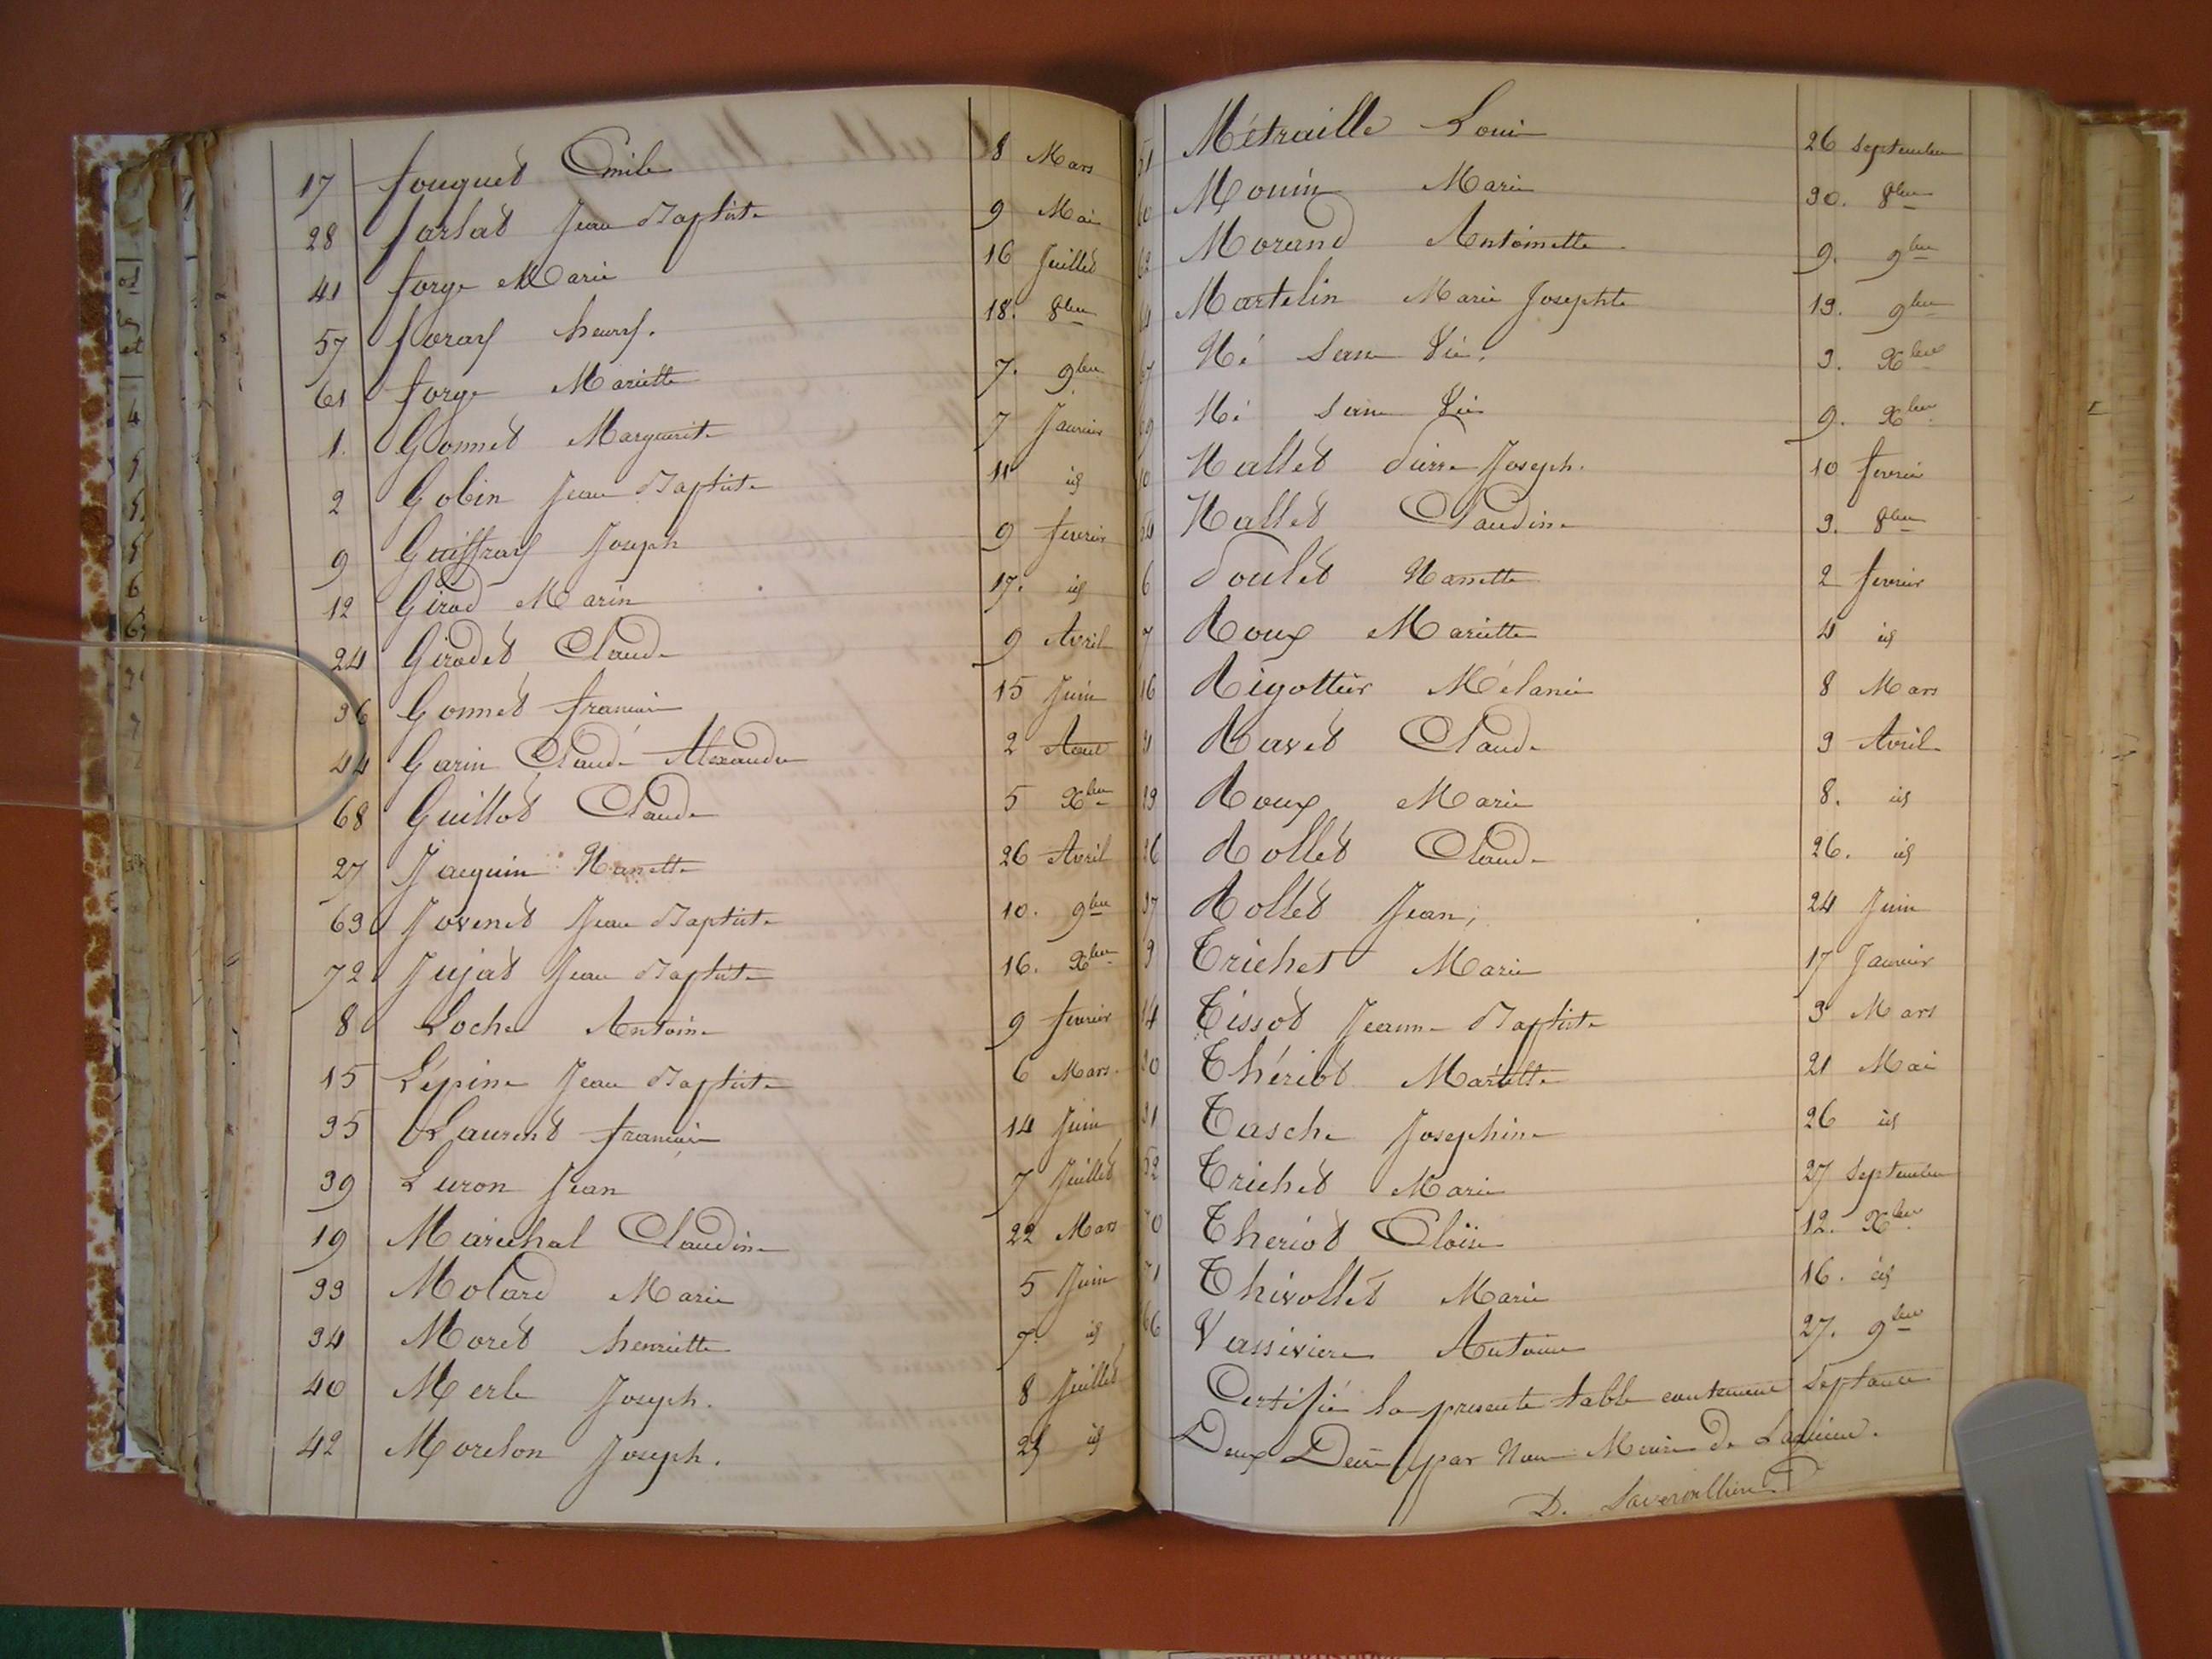 17 fouguet Emile 8 Mars
28 farlat Jean Baptiste 9 Mai
41 forge Marie 16 Juillet
57 foray henry. 18. 8bre
61 forge Mariette 7. 9bre
1. Gonnet Marguerite 7 Janvier
2 Gobin Jean Baptiste 11 id
9 Guiffray Joseph 9 fevrier
12 Girod Marin 17. id
24 Girodet Claude 9 Avril
36 Gonnet francois 15 Juin
44 Garin Claude Alexandre 2 Aout
68 Guillot Claude 5 Xbre
27 Jacquin Nanette 26 Avril
63 Jovenet Jean Baptiste 10. 9bre
72 Jujat Jean Baptiste 16. Xbre
8 Loche Antoine 9 fevrier
15 Lépine Jean Baptiste 6 Mars.
35 Laurent francois 14 Juin
39 Luron Jean 7 Juillet
19 Maréchal Claudine 22 Mars
33 Molard Marie 5 Juin
34 Morêt henriette 7. id
40 Merle Joseph. 8 Juillet
42 Morelon Joseph. id
51 Métraille Louis 26 Septembre
60 Mouin Marie 30. 8bre
62 Morand Antoinette 9. 9bre
64 Martelin Marie Josephte 19. 9bre
67 Né Sans Vie. 3. Xbre
69 Né Sans Vie 9. Xbre
10 Nallet Pierre Joseph. 10 fevrier
54 Nallet Claudine 3. 8bre
6 Poulet Nanette 2 fevrier
7 Roux Mariette 4 id
16 Rigottier Mélanie 8 Mars
21 Ravet Claude 3 Avril
23 Roux Marie 8. id
26 Rollet Claude 26. id
37 Rollet Jean, 24 Juin
3 Trichet Marie 17 Janvier
14 Tissot Jeanne Baptiste 3 Mars
30 Thériot Mariette 21 Mai
31 Tasche Josephine 26 id
52 Trichet Marie 27 Septembre
70 Theriot Cloïse 12. Xbre
71 Thivollet Marie 16. id
66 Vassiviere Antoine 27. 9bre
Certifié la presente table contenant Septante
Deux Decès par Nous Maire de Lagnieu.
D.